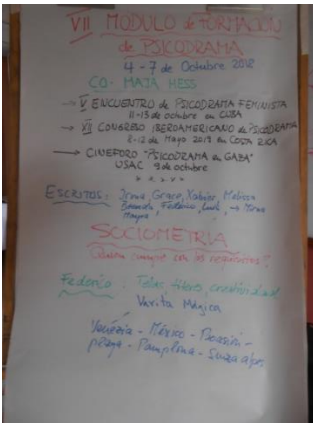 VII MODULO de FORMACION
de PSICODRAMA
4 - 7 de Octubre 2012
CO- MAJA HESS
→ V ENCUENTRO de PSICODRAMA FEMINISTA
11-15 de octubre en CUBA
→ XI CONGRESO IBEROAMERICANO de PSICODRAMA
8-12 de Mayo 2013 en COSTA RICA
→ CINEFORO "PSICODRAMA en GABA"
USAC 9 de octubre
* * * * *
ESCRITOS: Irma, Grace, Xabier, Melissa
Federico,
Mayra
SOCIOMETRIA
con los requisitos?
Federico: Telas, títeres, creatividad
Varita Mágica
Venézia - México -
Pamplona -